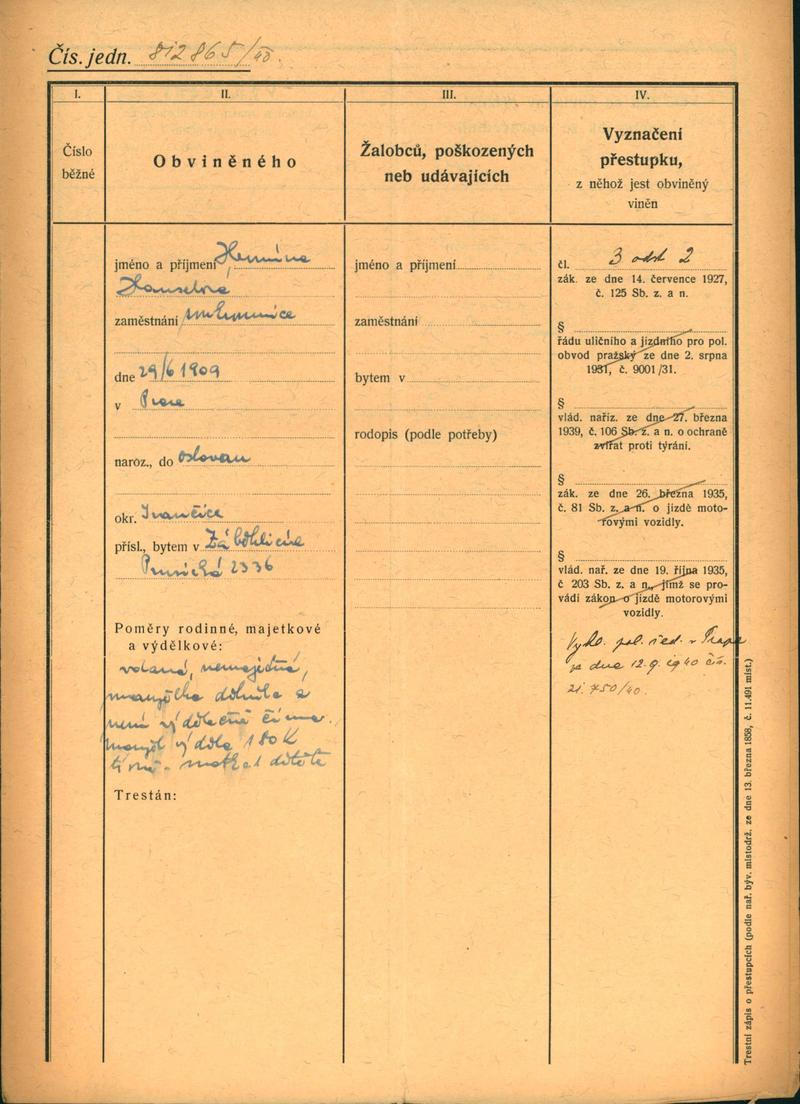 Čís. jedn. 812865/40.
I.
Číslo
běžné
II.
Obviněného
III.
Žalobců, poškozených
neb udávajících
IV.
Vyznačení
přestupku,
z něhož jest obviněný
viněn
jméno a příjmení Hermína
zaměstnání
dne 29/6 1909
v Praze
naroz., do Oslovan
okr. Ivančice
přísl., bytem v
2336
Poměry rodinné, majetkové
a výdělkové:
vdaná, nemajetná,
manželka a
není výdělečně činna.
manžel 180 K
týdně - matka 1 dítěte
Trestán:
jméno a příjmení
zaměstnání
bytem v
rodopis (podle potřeby)
čl. 3 odst 2
zák. ze dne 14. července 1927,
č. 125 Sb. z. a n.
§
řádu uličního a jízdního pro pol.
obvod pražský ze dne 2. srpna
1931, č. 9001/31.
§
vlád. naříz. ze dne 27. března
1939, č. 106 Sb. z. a n. o ochraně
zvířat proti týrání.
§
zák. ze dne 26. března 1935,
č. 81 Sb. z. a n. o jízdě moto-
rovými vozidly.
§
vlád. nař. ze dne 19. října 1935,
č 203 Sb. z. a n., jímž se pro-
vádí zákon o jízdě motorovými
vozidly.
Vyhl. pol. řed. v Praze
ze dne 12.9.1940 čís.
21.750/40.
Trestní zápis o přestupcích (podle nař. býv. místodrž. ze dne 13. března 1858, č. 11.491 míst.)